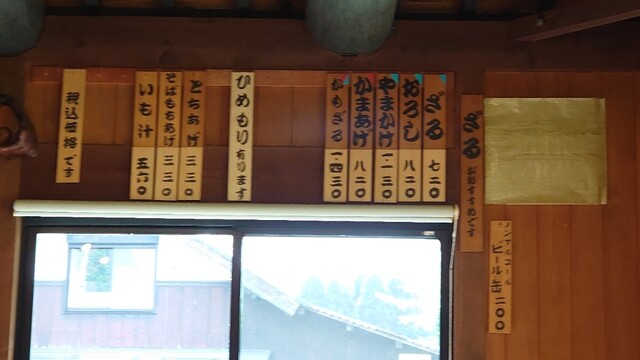 ざる おすすめです
ざる 七二〇
おろし 八二〇
やまかけ 一一三〇
かまあげ 八二〇
かもざる 一四三〇
ひめもり有ります
とちあげ 三三〇
そばもちあげ 三三〇
いも汁 五六〇
税込価格です
ノンアルコール
ビール缶 二〇〇